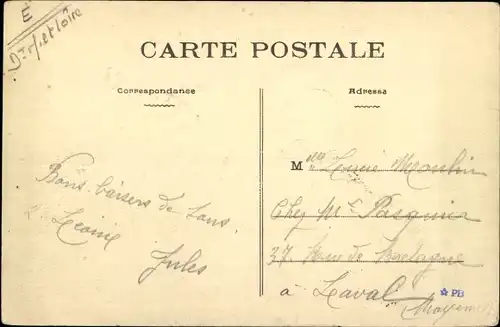 E
Dt M et Loire
CARTE POSTALE
Correspondance
Adresse
Bons baisers de tous.
Léonie
Jules
Mlle Louise Moulin
Chez Mr Pasquier
37 Rue de Bretagne
à Laval
Mayenne
☆ PB